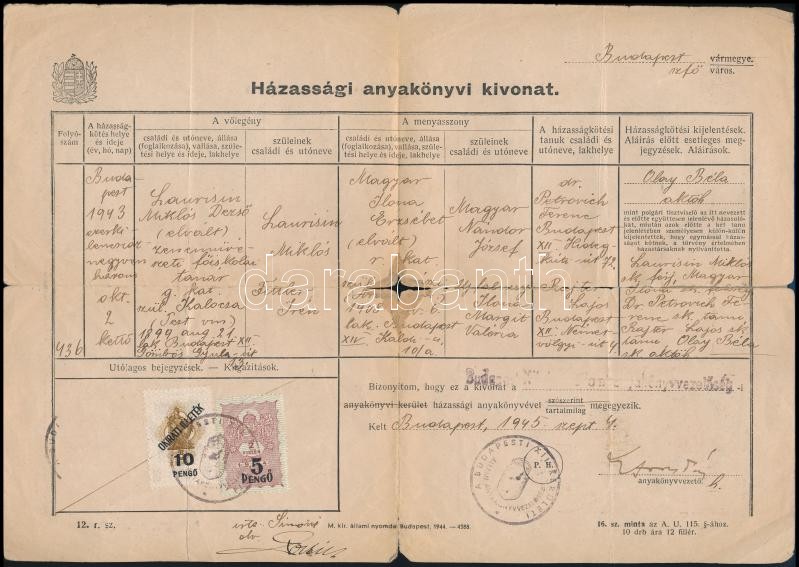 Budapest vármegye.
város.
Házassági anyakönyvi kivonat.
Folyó-
szám
A házasság-
kötés helye
és ideje
(év, hó, nap)
A vőlegény
családi és utóneve, állása
(foglalkozása), vallása, szüle-
tési helye és ideje, lakhelye
szüleinek
családi és utóneve
A menyasszony
családi és utóneve, állása
(foglalkozása), vallása, szüle-
tési helye és ideje, lakhelye
szüleinek
családi és utóneve
A házasságkötési
tanuk családi és
utóneve, lakhelye
Házasságkötési kijelentések.
Aláírás előtt esetleges meg-
jegyzések. Aláírások.
436
Buda-
pest
1943
ezerki-
lencszáz-
negyven
három
okt.
2
kettő
Laurisin
Miklós Dezső
(elvált)
zeneművé-
szeti főiskolai
tanár
g. kat.
szül. Kalocsa
(Pest vm)
1899 aug 21.
lak. Budapest XII.
Gömbös Gyula-út
Laurisin
Miklós
Irén
Magyar
Ilona
Erzsébet
(elvált)
r. kat.
lak. Budapest
XIV.
10/a.
Magyar
Nándor
József
Ilona
Margit
Valéria
dr.
Petrovich
Ferenc
Budapest
XII.
Rajter
Lajos
Budapest
XII. Német-
völgyi-út 4.
Olay Béla
aktöh
mint polgári tisztviselő az itt nevezett
és előtte együttesen jelenlévő házasuló-
kat, miután azok előtte a két tanu
jelenlétében személyesen külön-külön
kijelentették, hogy egymással házas-
ságot kötnek, a törvény értelmében
házastársaknak nyilvánította.
Laurisin Miklós
sk. férj, Magyar
Ilona sk. feleség
Dr Petrovich Fe-
renc sk. tanu,
Rajter Lajos sk
tanu Olay Béla
sk. aktöh
Utólagos bejegyzések. — Kiigazítások.
OKIRATI ILLETÉK
10
PENGŐ
5
PENGŐ
Bizonyítom, hogy ez a kivonat a
anyakönyvi kerület házassági anyakönyvével szószerint
tartalmilag megegyezik.
Kelt Budapest, 1945. szept 4.
A BUDAPESTI XII. KERÜLETI
P. H.
anyakönyvvezető
h.
12. r. sz.
M. kir. állami nyomda. Budapest, 1944. — 4588.
16. sz. minta az A. U. 115. §-ához.
10 drb ára 12 fillér.
darabanth